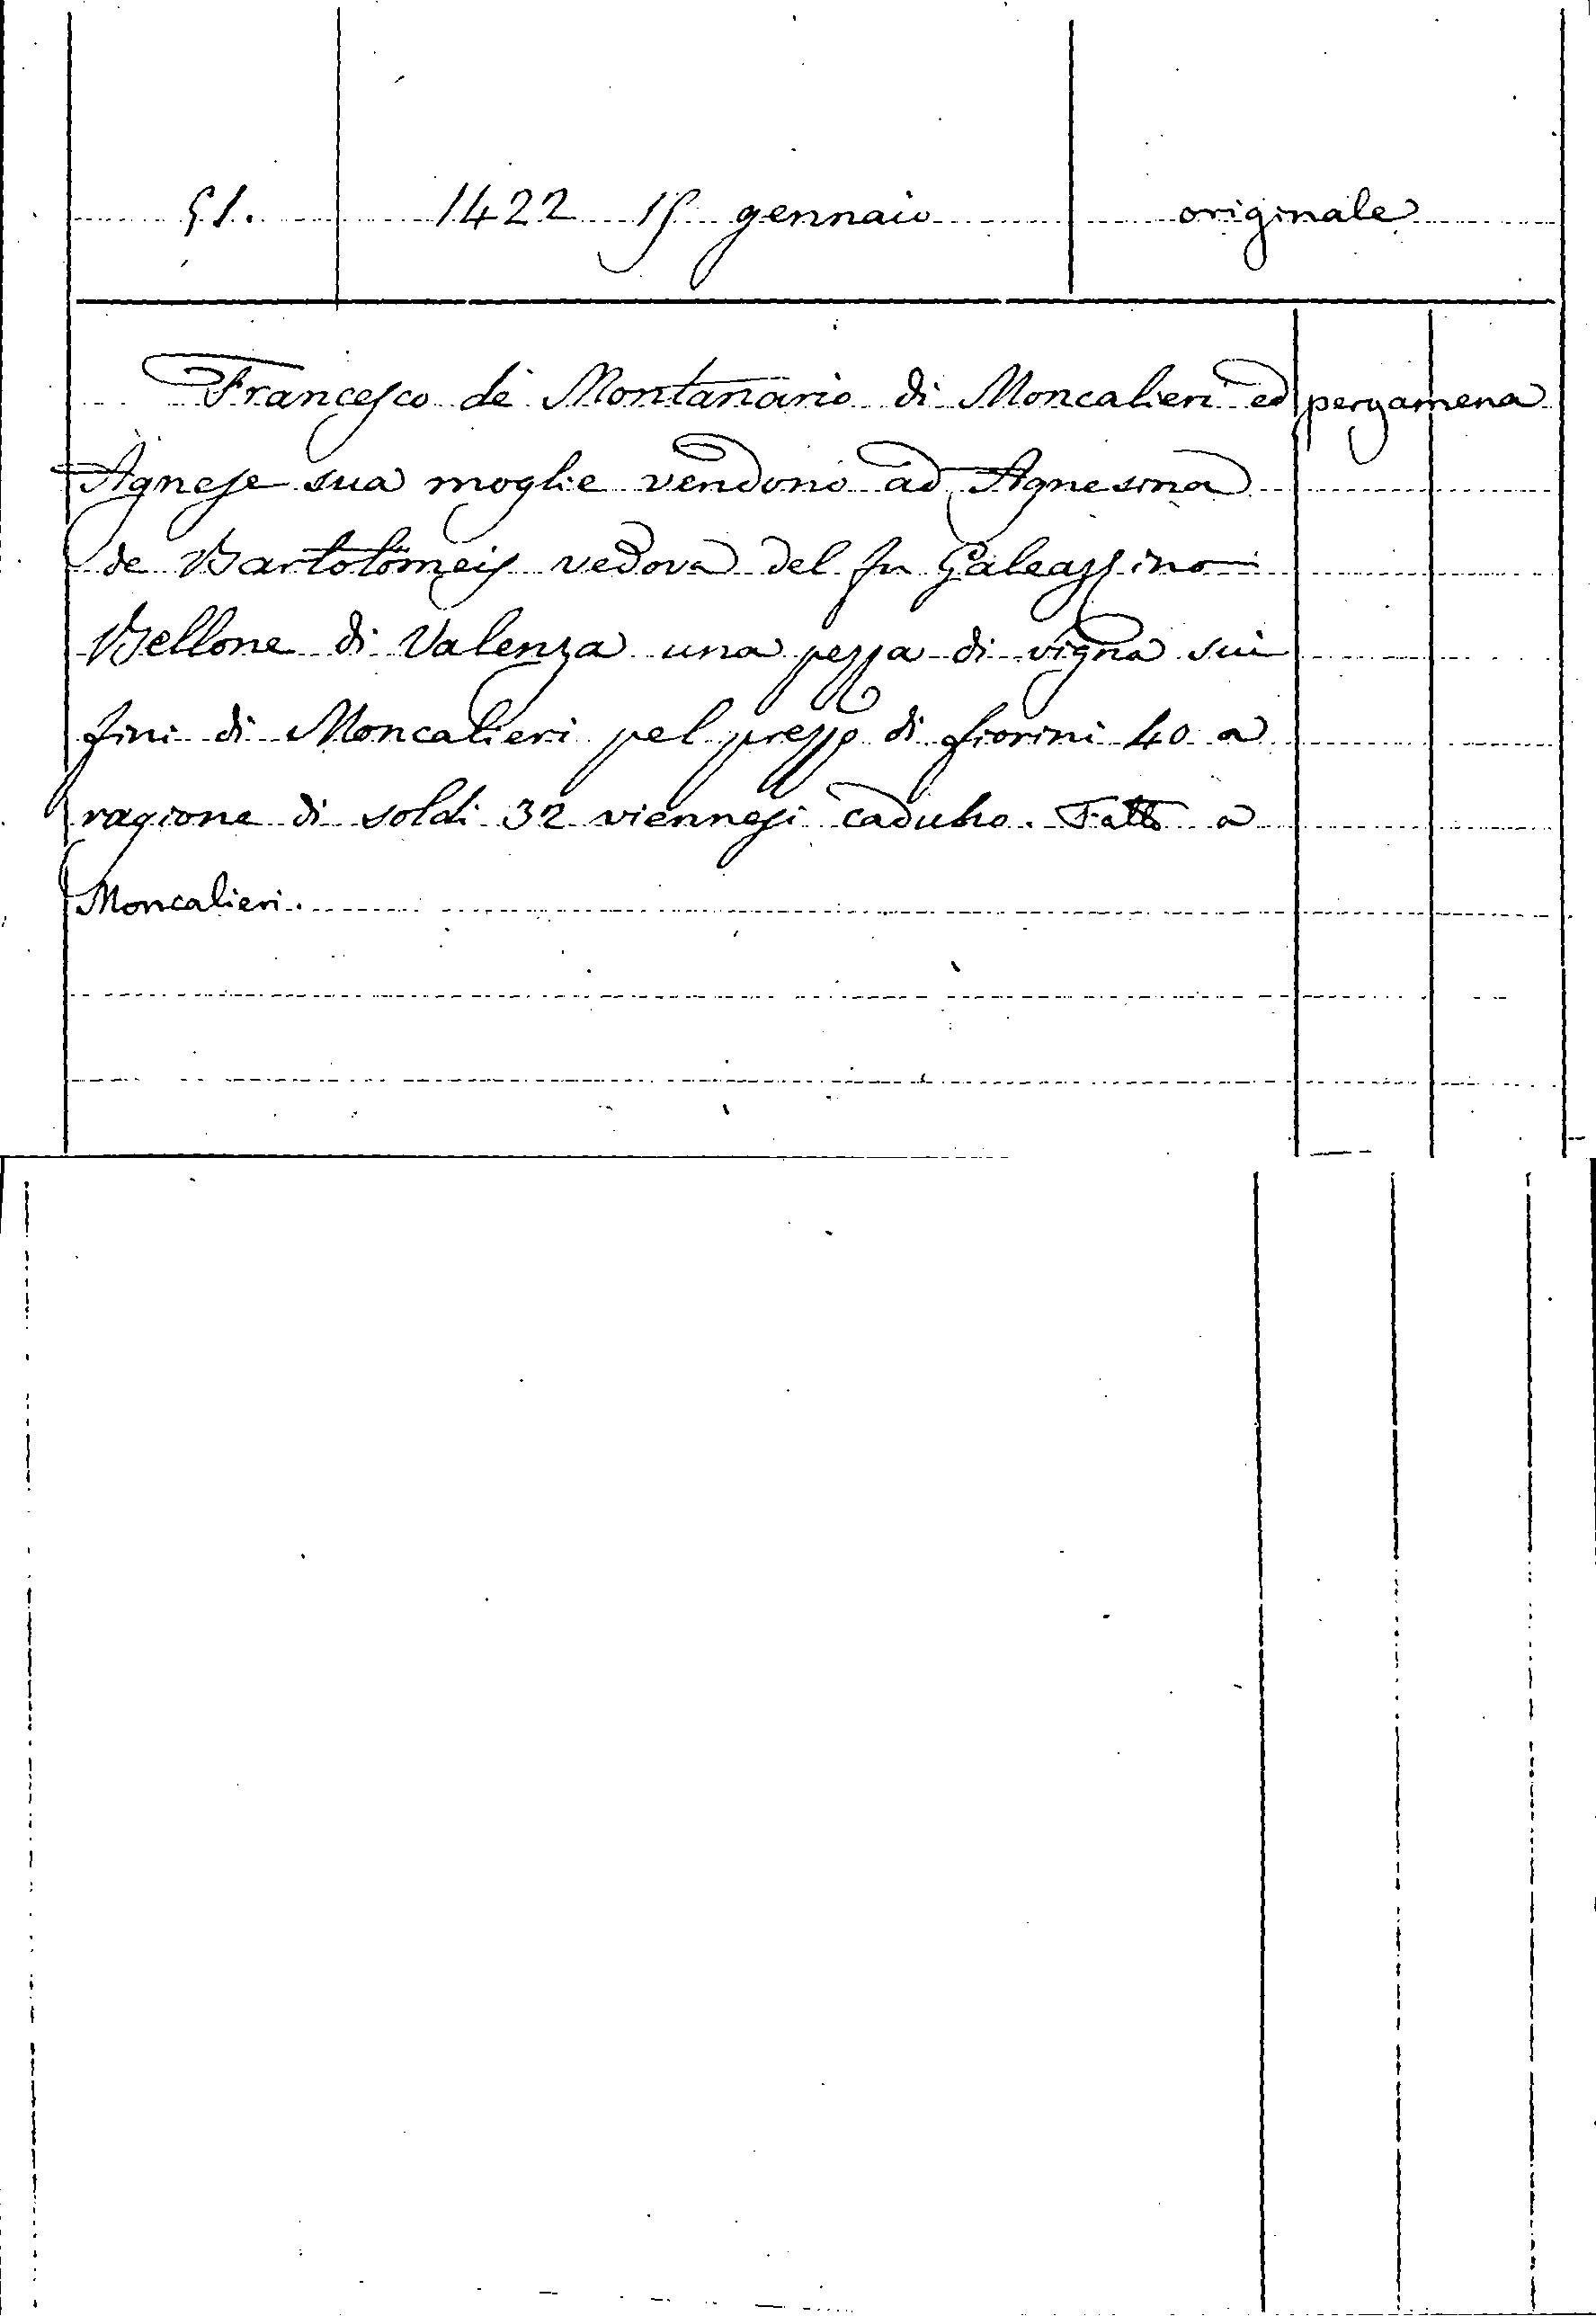 51. 1422 15 gennaio originale
Francesco de Montanario di Moncalieri ed pergamena
Agnese sua moglie vendono ad Agnesina
de Bartolomeis vedova del fu Galeazzino
Bellone di Valenza una pezza di vigna sui
fini di Moncalieri pel prezzo di fiorini 40 a
ragione di soldi 32 viennesi caduno. Fatto a
Moncalieri.